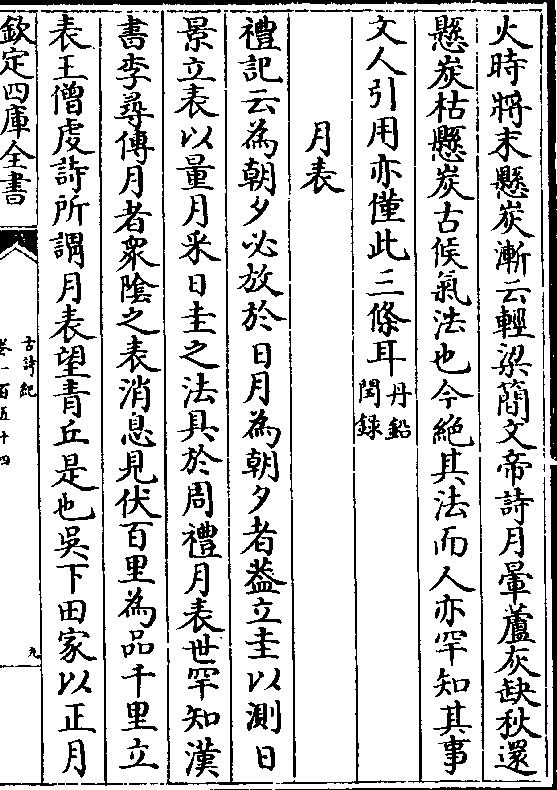 火時將末懸炭漸云輕梁簡文帝詩月暈蘆灰缺秋還
懸炭枯懸炭古候氣法也今絶其法而人亦罕知其事
文人引用亦僅此三條耳丹鉛閏録
月表
禮記云為朝夕必放於日月為朝夕者葢立圭以測日
景立表以量月采日圭之法具於周禮月表世罕知漢
書李尋傳月者衆陰之表消息見伏百里為品千里立
表王僧虔詩所謂月表望青丘是也吳下田家以正月
欽定四庫全書
古詩紀
卷一百五十四
九